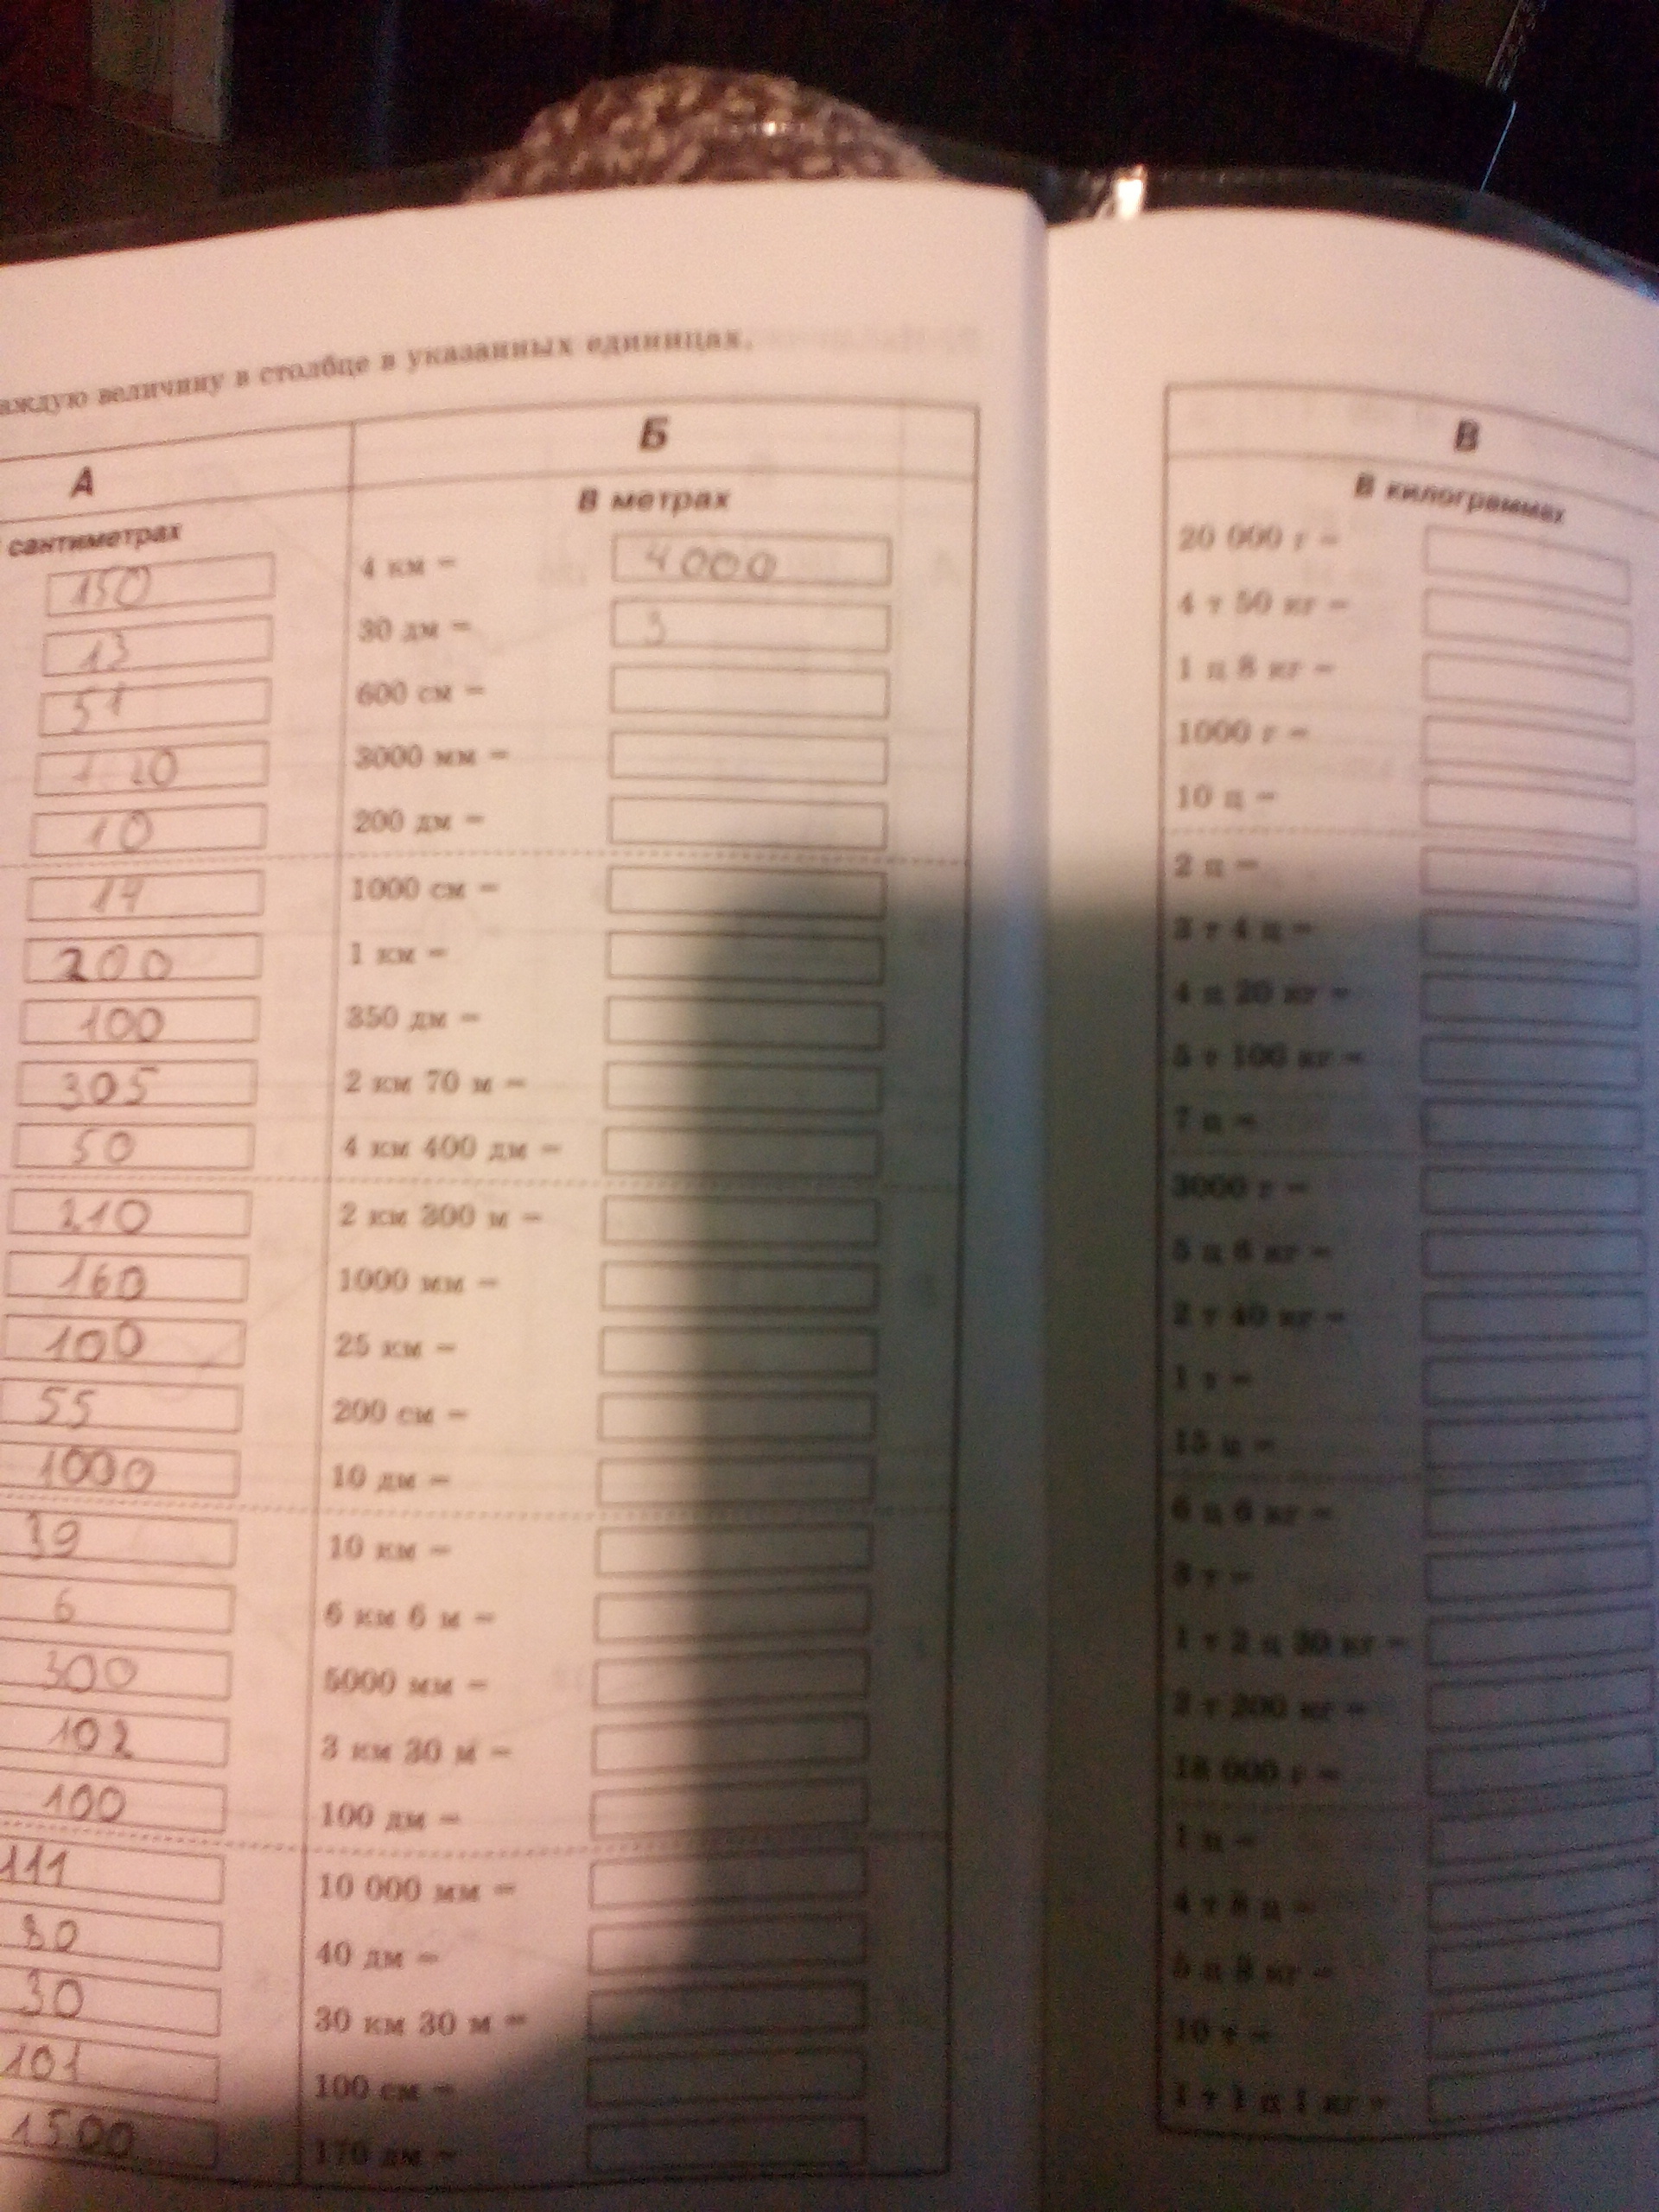 величину в столбце в указанных единицах.
А
сантиметрах
150
13
51
10
14
200
100
305
50
210
160
100
55
1000
39
6
300
102
100
111
80
30
101
1500
Б
В метрах
4 км = 4000
30 дм = 3
600 см =
3000 мм =
200 дм =
1000 см =
1 км =
350 дм =
2 км 70 м =
4 км 400 дм =
2 км 300 м =
1000 мм =
25 км =
200 см =
10 дм =
10 км =
6 км 6 м =
5000 мм =
3 км 30 м =
100 дм =
10 000 мм =
40 дм =
30 км 30 м =
100 см =
170 дм =
В
В килограммах
20 000 г =
4 т 50 кг =
1 ц 8 кг =
1000 г =
10 ц =
2 ц =
3 т 4 ц =
4 ц 20 кг =
5 т 100 кг =
7 ц =
3000 г =
5 ц 6 кг =
2 т 40 кг =
1 т =
15 ц =
6 ц 6 кг =
3 т =
1 т 2 ц 30 кг =
2 т 200 кг =
18 000 г =
1 ц =
4 т 8 ц =
5 ц 8 кг =
10 т =
1 т 1 ц 1 кг =